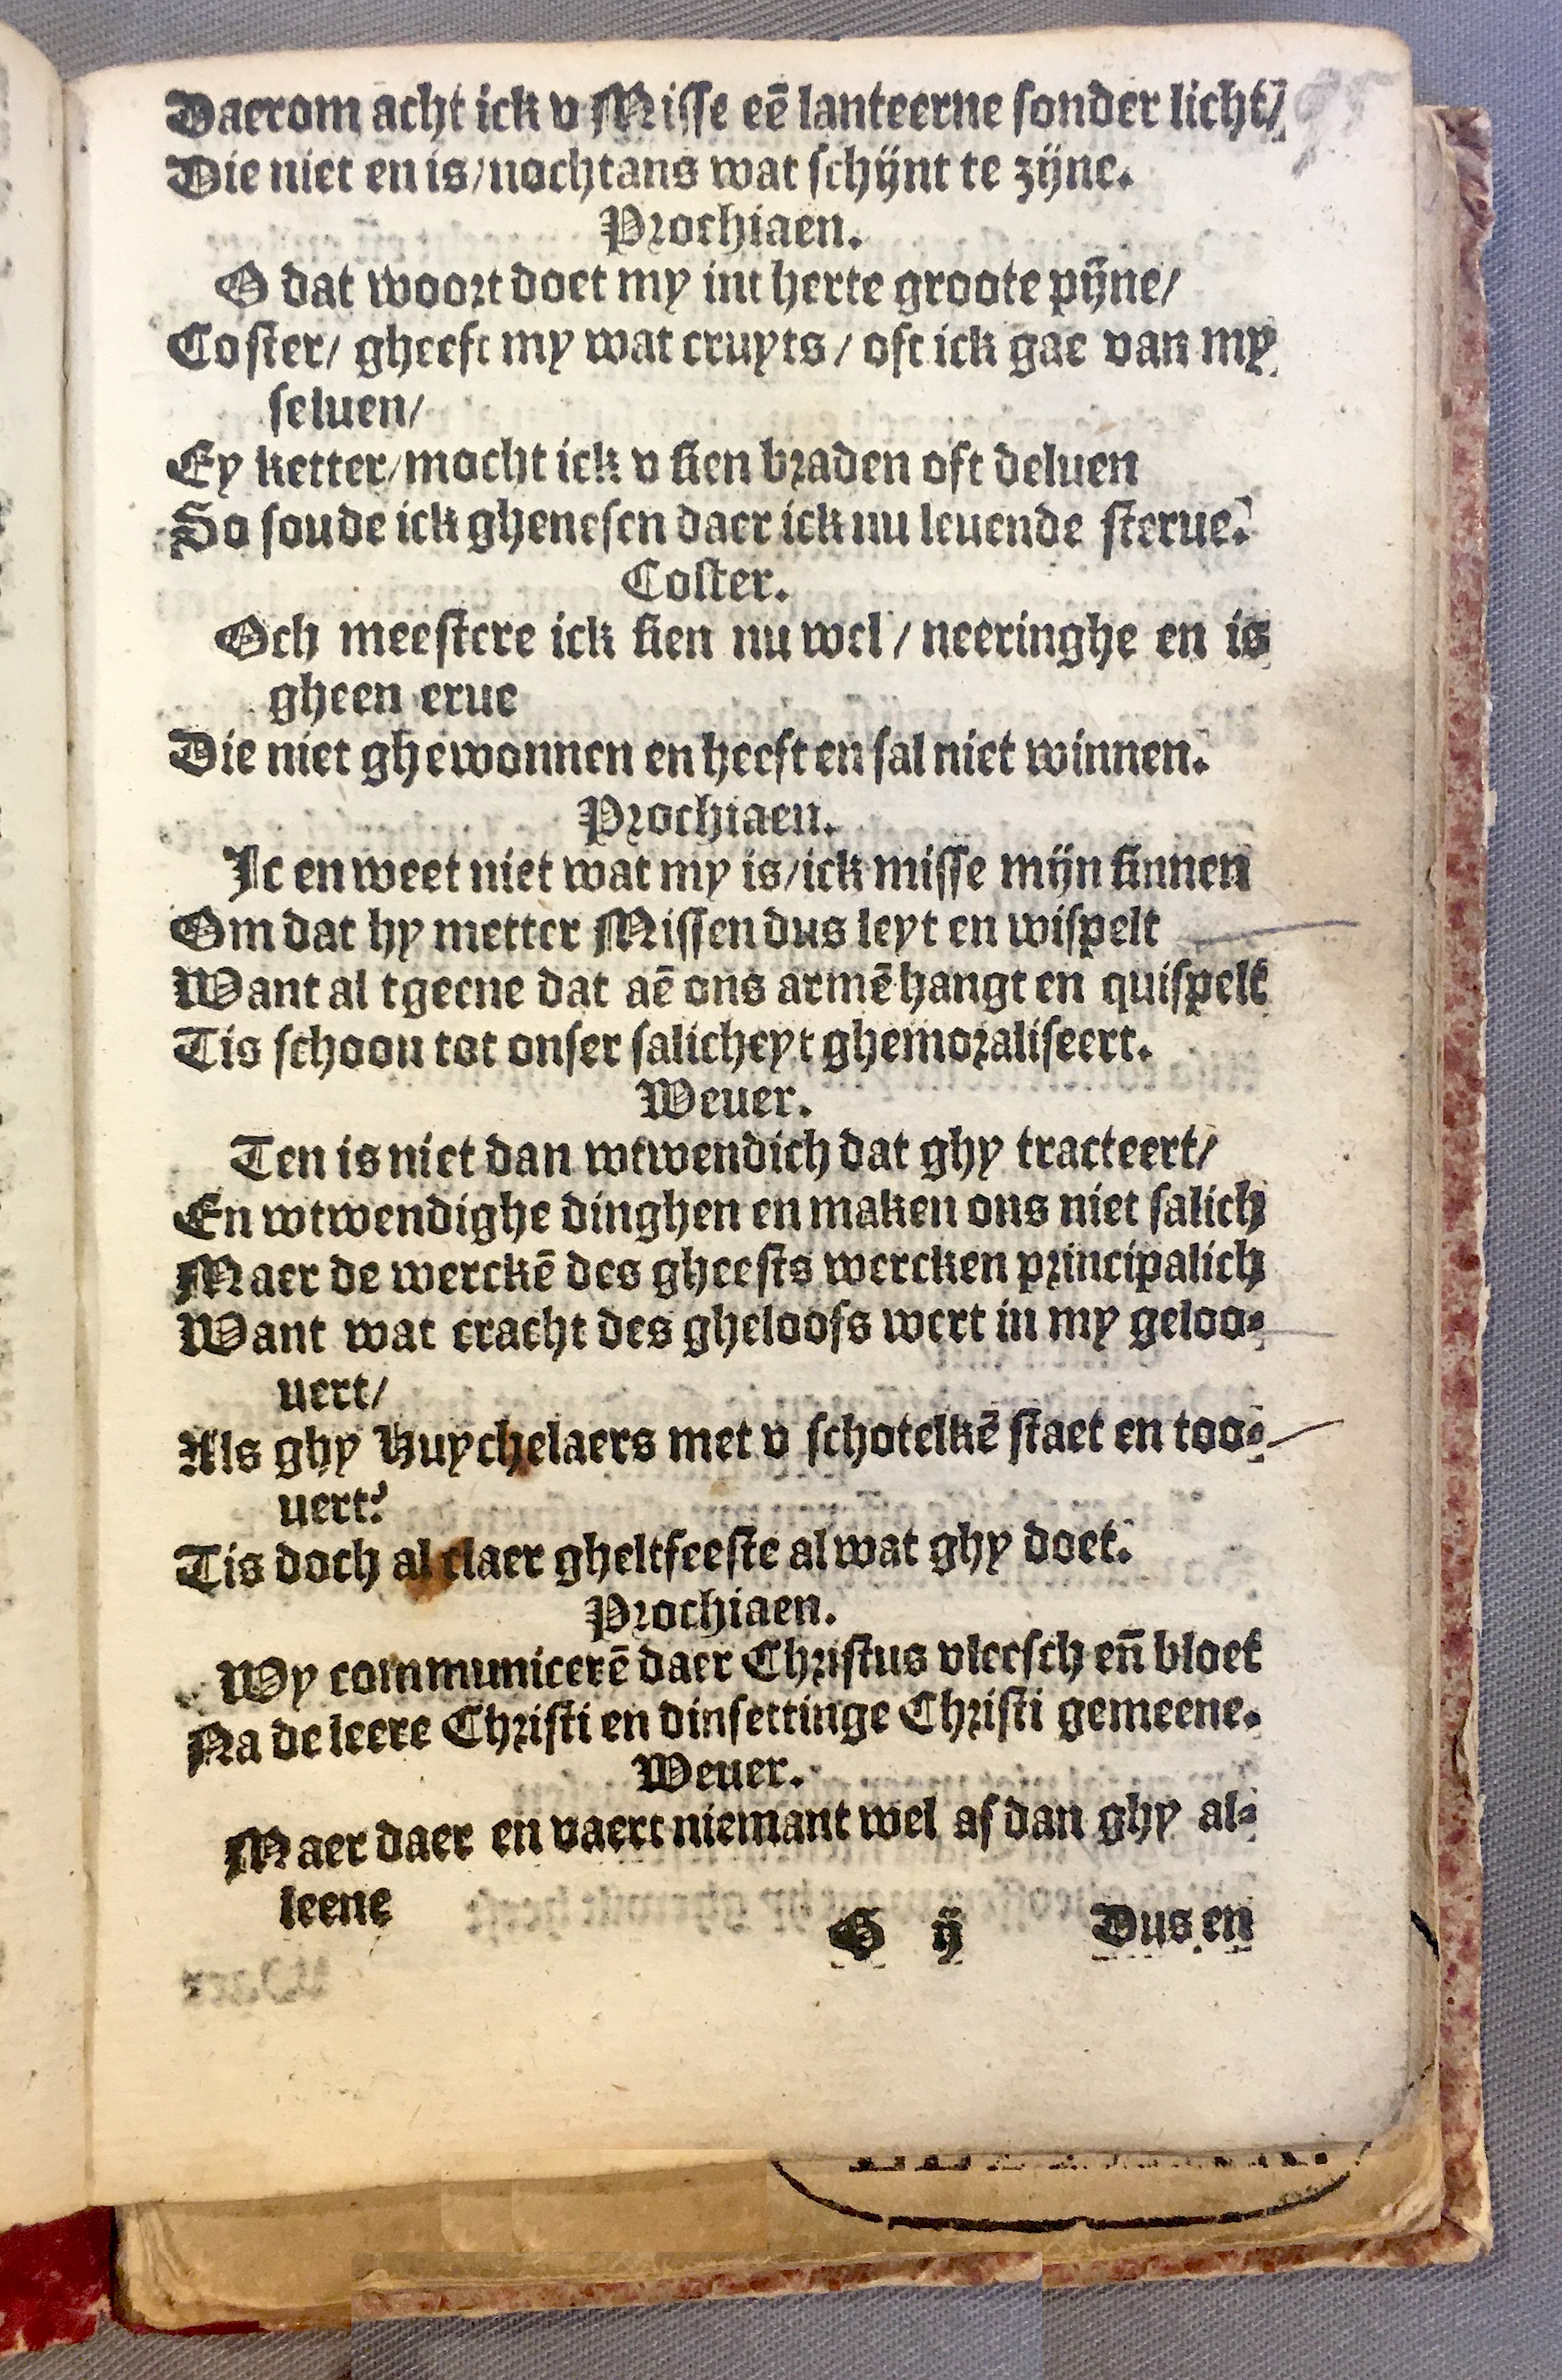 Daerom acht ick v Misse eē lanteerne sonder licht/
Die niet en is/nochtans wat schijnt te zijne.
Prochiaen.
O dat woort doet my int herte groote pijne/
Coster/ gheeft my wat cruyts/ oft ick gae van my
seluen/
Ey ketter/mocht ick v sien braden oft deluen
So soude ick ghenesen daer ick nu leuende sterue.
Coster.
Och meestere ick sien nu wel/ neeringhe en is
gheen erue
Die niet ghewonnen en heeft en sal niet winnen.
Prochiaen.
Ic en weet niet wat my is/ick misse mijn sinnen
Om dat hy metter Missen dus leyt en wispelt
Want al tgeene dat aē ons armē hangt en quispelt
Tis schoon tot onser salicheyt ghemoraliseert.
Weuer.
Ten is niet dan wtwendich dat ghy tracteert/
En wtwendighe dinghen en maken ons niet salich
Maer de werckē des gheests wercken principalich
Want wat cracht des gheloofs wert in my geloo-
uert/
Als ghy Huychelaers met v schotelkē staet en too-
uert?
Tis doch al claer gheltfeeste al wat ghy doet.
Prochiaen.
Wy communicerē daer Christus vleesch eñ bloet
Na de leere Christi en dinsettinge Christi gemeene.
Weuer.
Maer daer en vaert niemant wel af dan ghy al-
leene
G ij Dus en